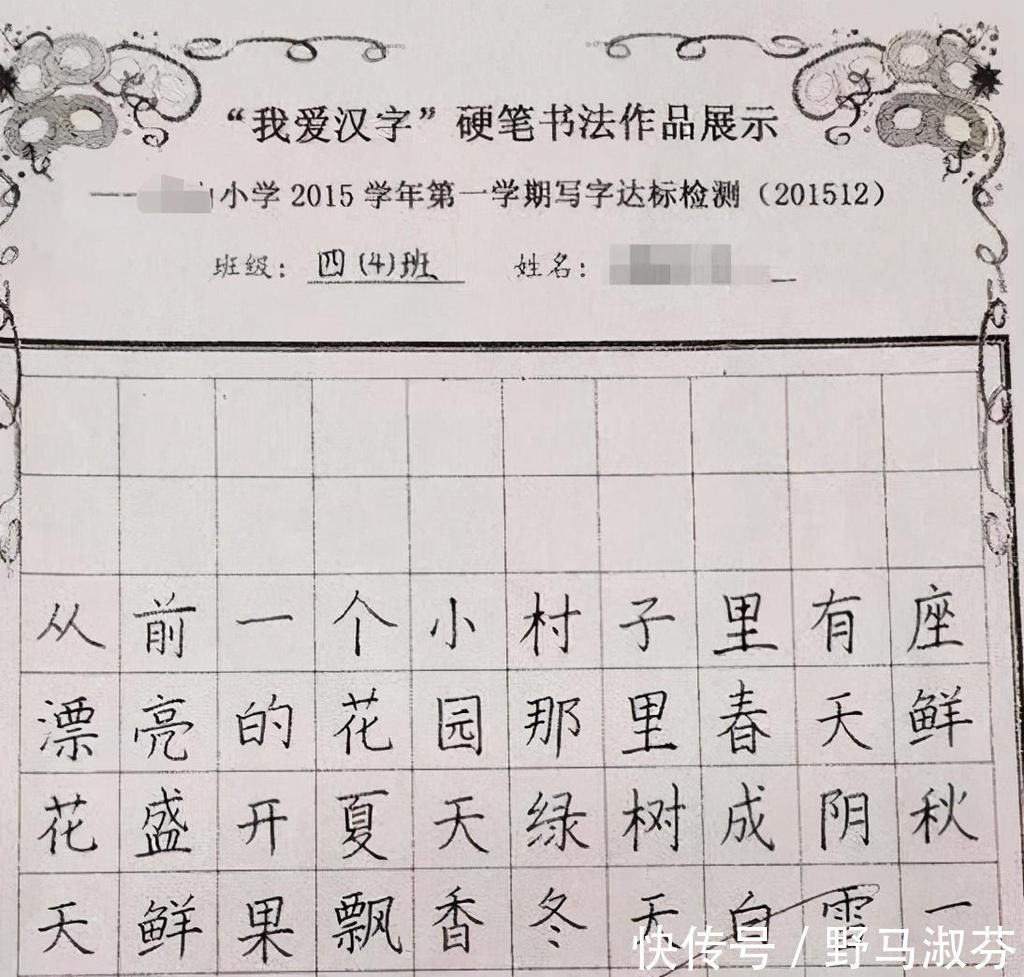 “我爱汉字”硬笔书法作品展示
小学2015学年第一学期写字达标检测（201512）
班级： 四(4)班 姓名：
从前一个小村子里有座
漂亮的花园那里春天鲜
花盛开夏天绿树成阴秋
天鲜果飘香冬天白雪一
快传号 / 野马淑芬